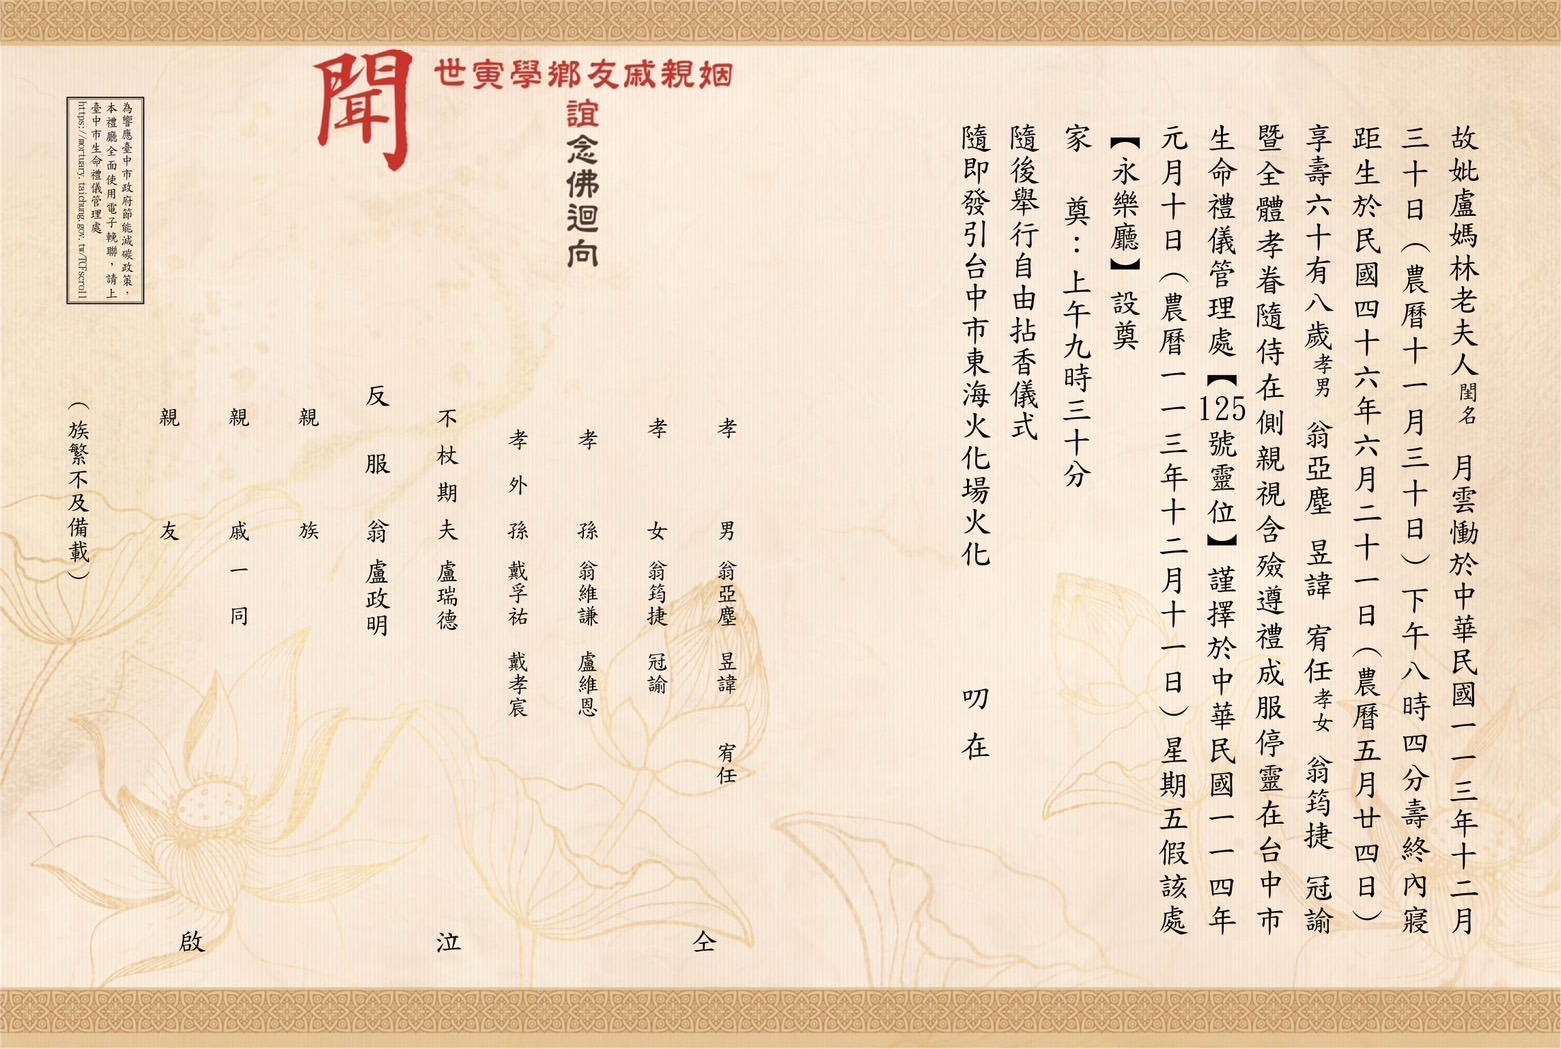 故妣盧媽林老夫人閨名 月雲慟於中華民國一一三年十二月
三十日（農曆十一月三十日）下午八時四分壽終內寢
距生於民國四十六年六月二十一日（農曆五月廿四日）
享壽六十有八歲孝男 翁亞塵 昱諱 宥任孝女 翁筠捷 冠諭
暨全體孝眷隨侍在側親視含殮遵禮成服停靈在台中市
生命禮儀管理處【125號靈位】謹擇於中華民國一一四年
元月十日（農曆一一三年十二月十一日）星期五假該處
【永樂廳】設奠
家 奠：上午九時三十分
隨後舉行自由拈香儀式
隨即發引台中市東海火化場火化 叨在
姻親戚友鄉學寅世
誼念佛迴向
聞
孝男 翁亞塵 昱諱 宥任
孝女 翁筠捷 冠諭
孝孫 翁維謙 盧維恩
孝外孫 戴孚祐 戴孝宸
不杖期夫 盧瑞德
反服翁 盧政明
親族
親戚一同
親友
仝泣啟
（族繁不及備載）
為響應臺中市政府節能減碳政策，
本禮廳全面使用電子輓聯，請上
臺中市生命禮儀管理處
https://mortuary.taichung.gov.tw/TCFscroll